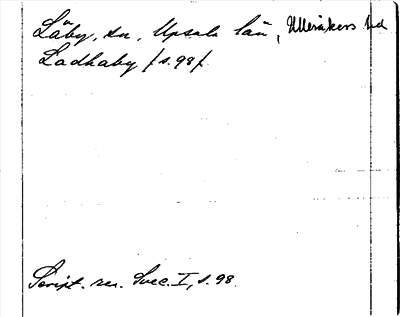 Läby, sn, Upsala län, Ulleråkers hd
Ladhaby /s. 98/.
Script. rer. Svec. I, s. 98.